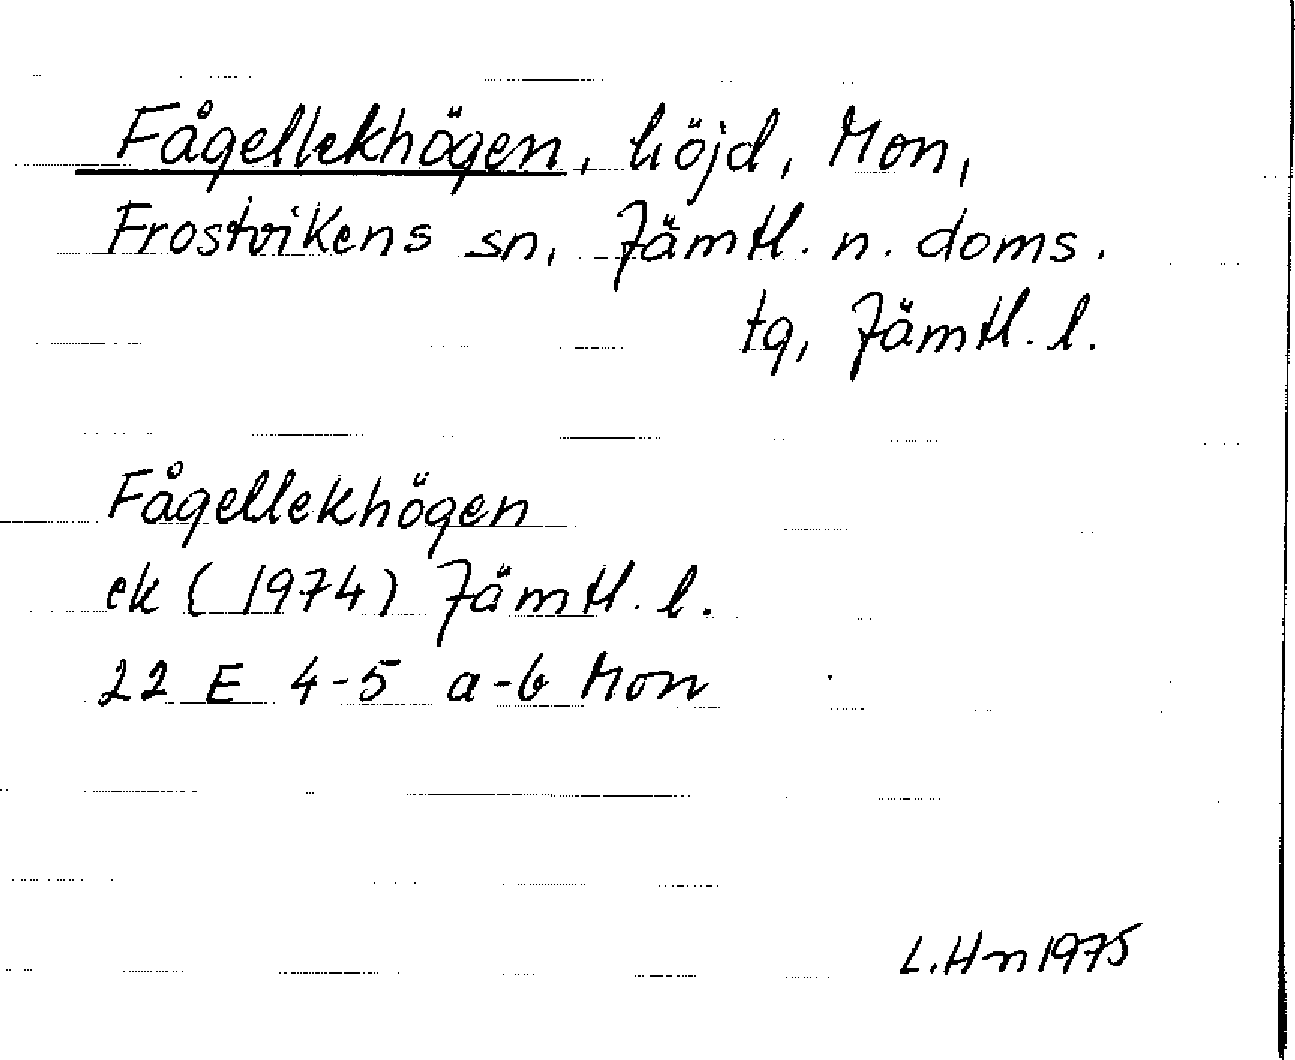 Fågellekhögen, höjd, Mon,
Frostvikens sn, Jämtl. n. doms.
tg, Jämtl. l.
Fågellekhögen
ek (1974) Jämtl. l.
22 E 4-5 a-b Mon
L. Hn 1975